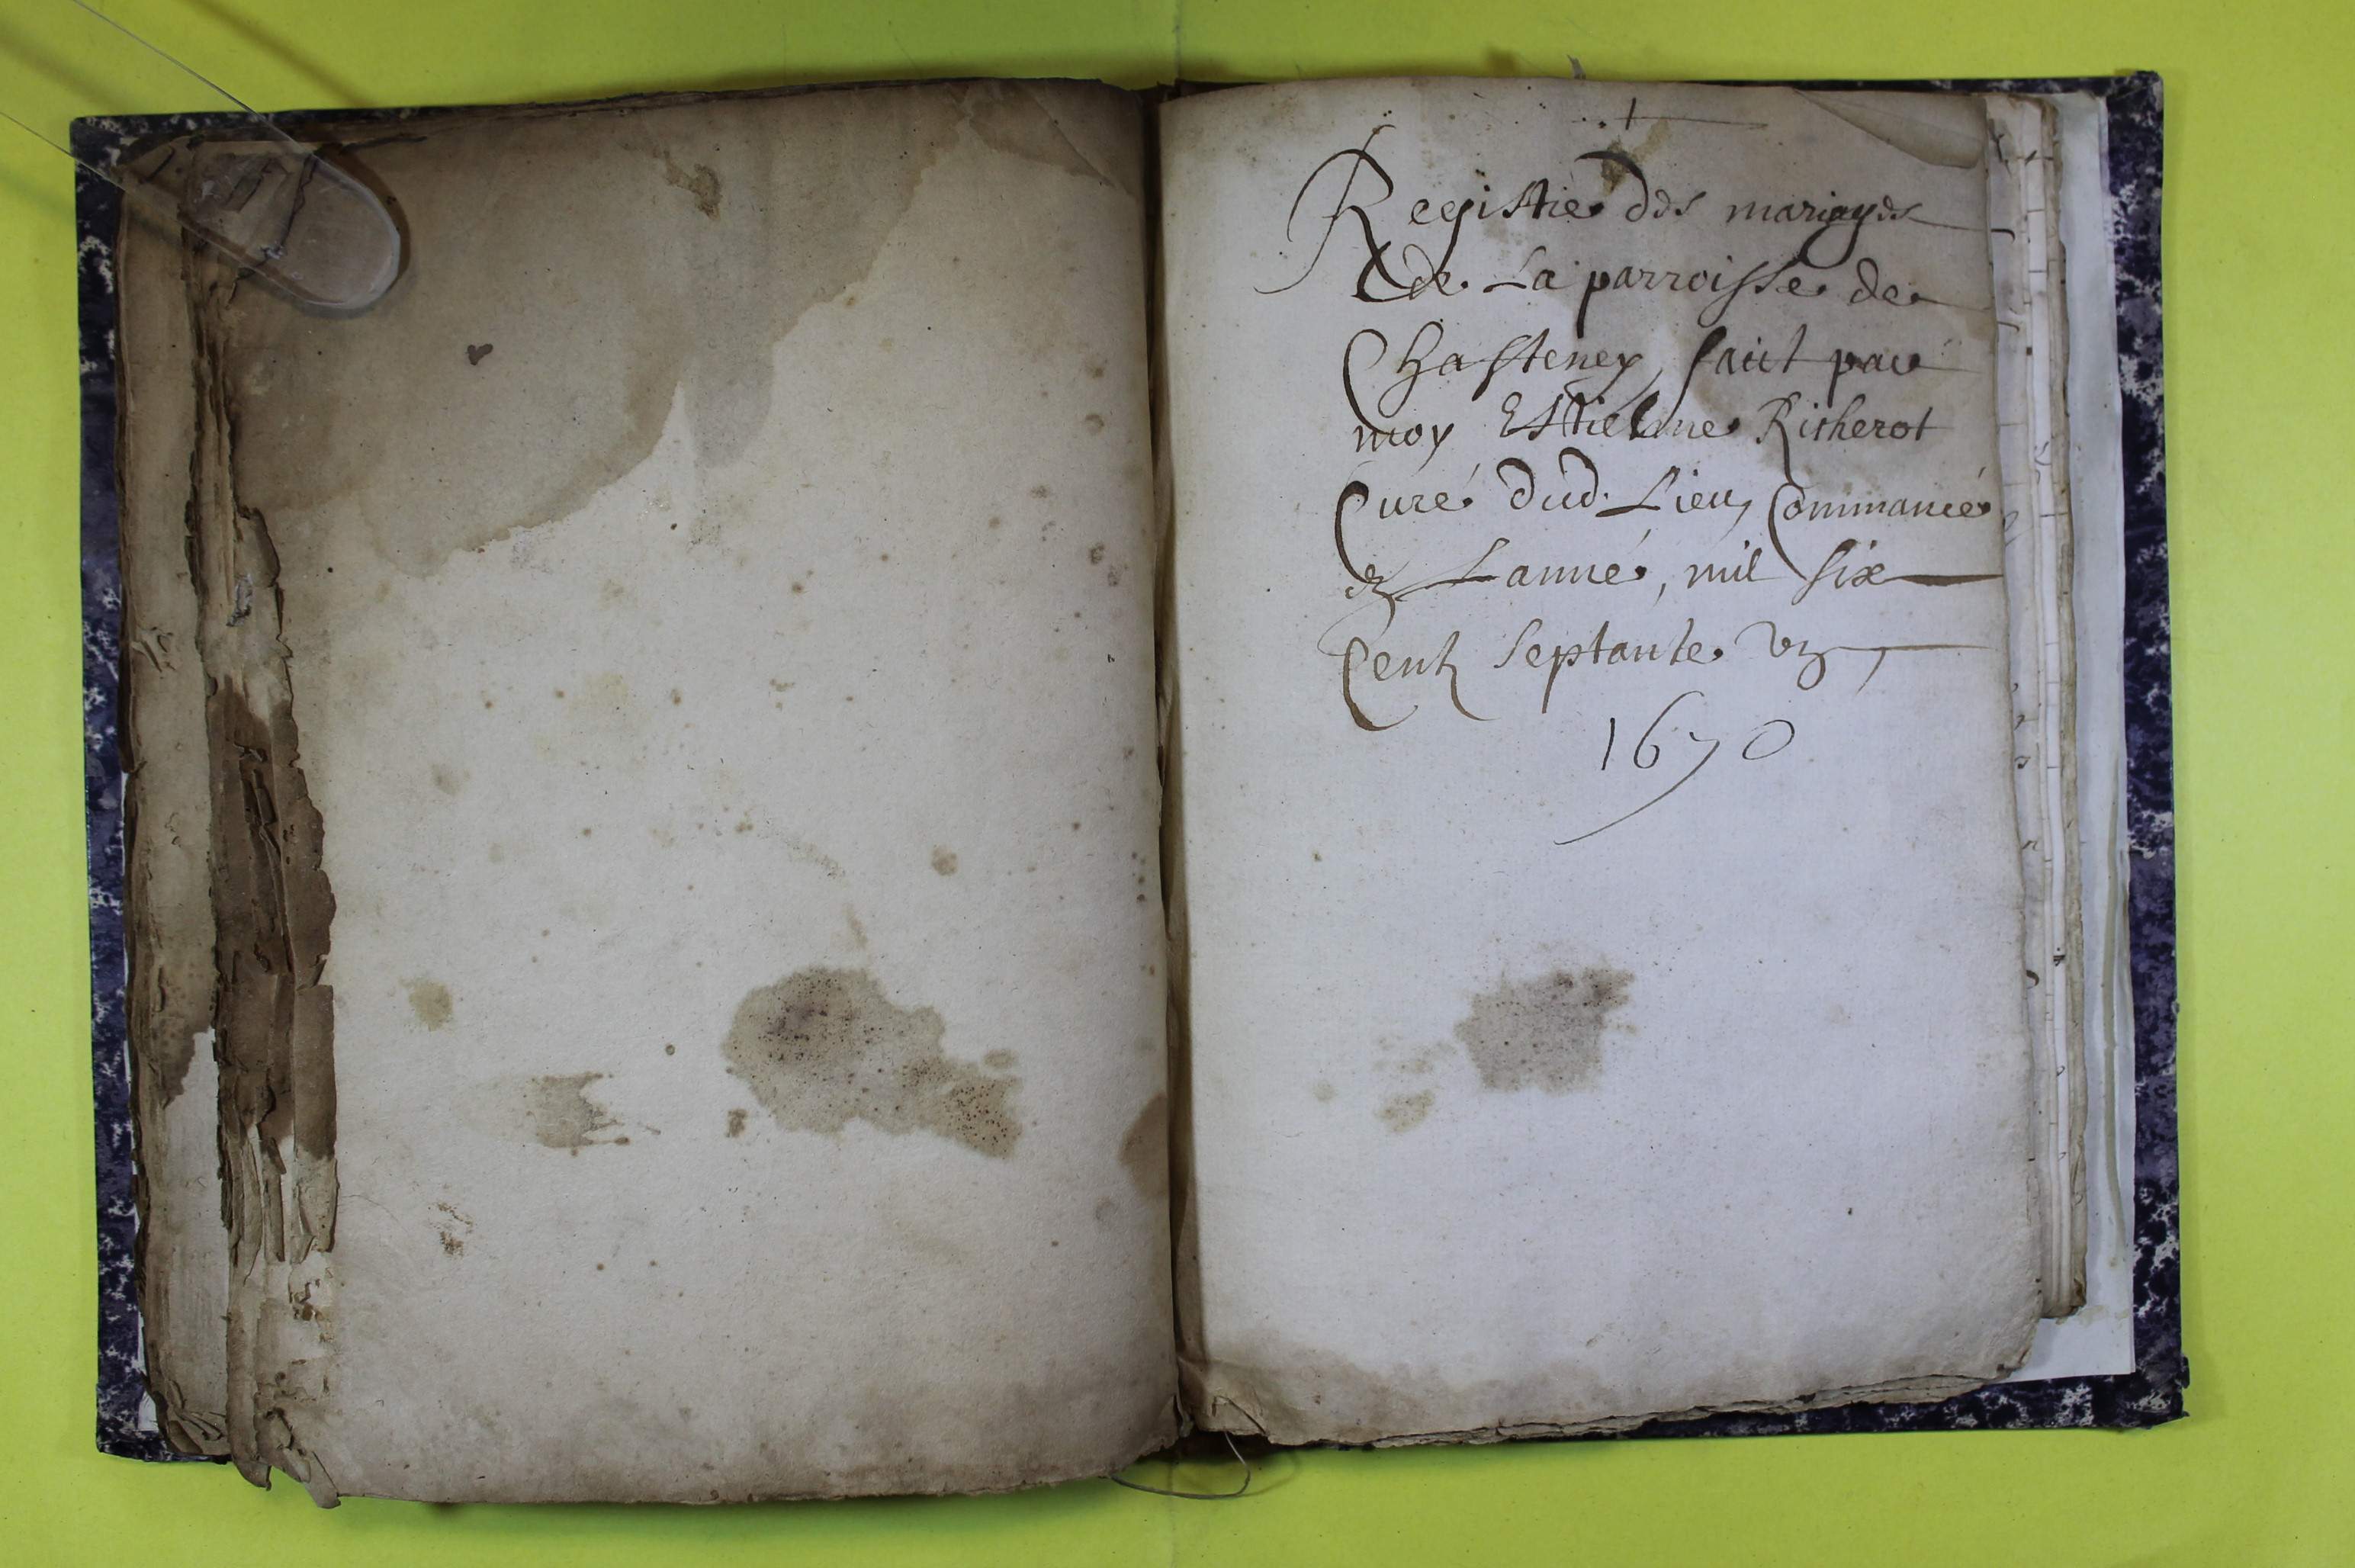 Registre des mariages
de La parroisse de
Chasteney faict par
moy Estienne Richerot
Curé dud. Lieu, Commancé
en Lanné, mil six
Centz septante un,
1670